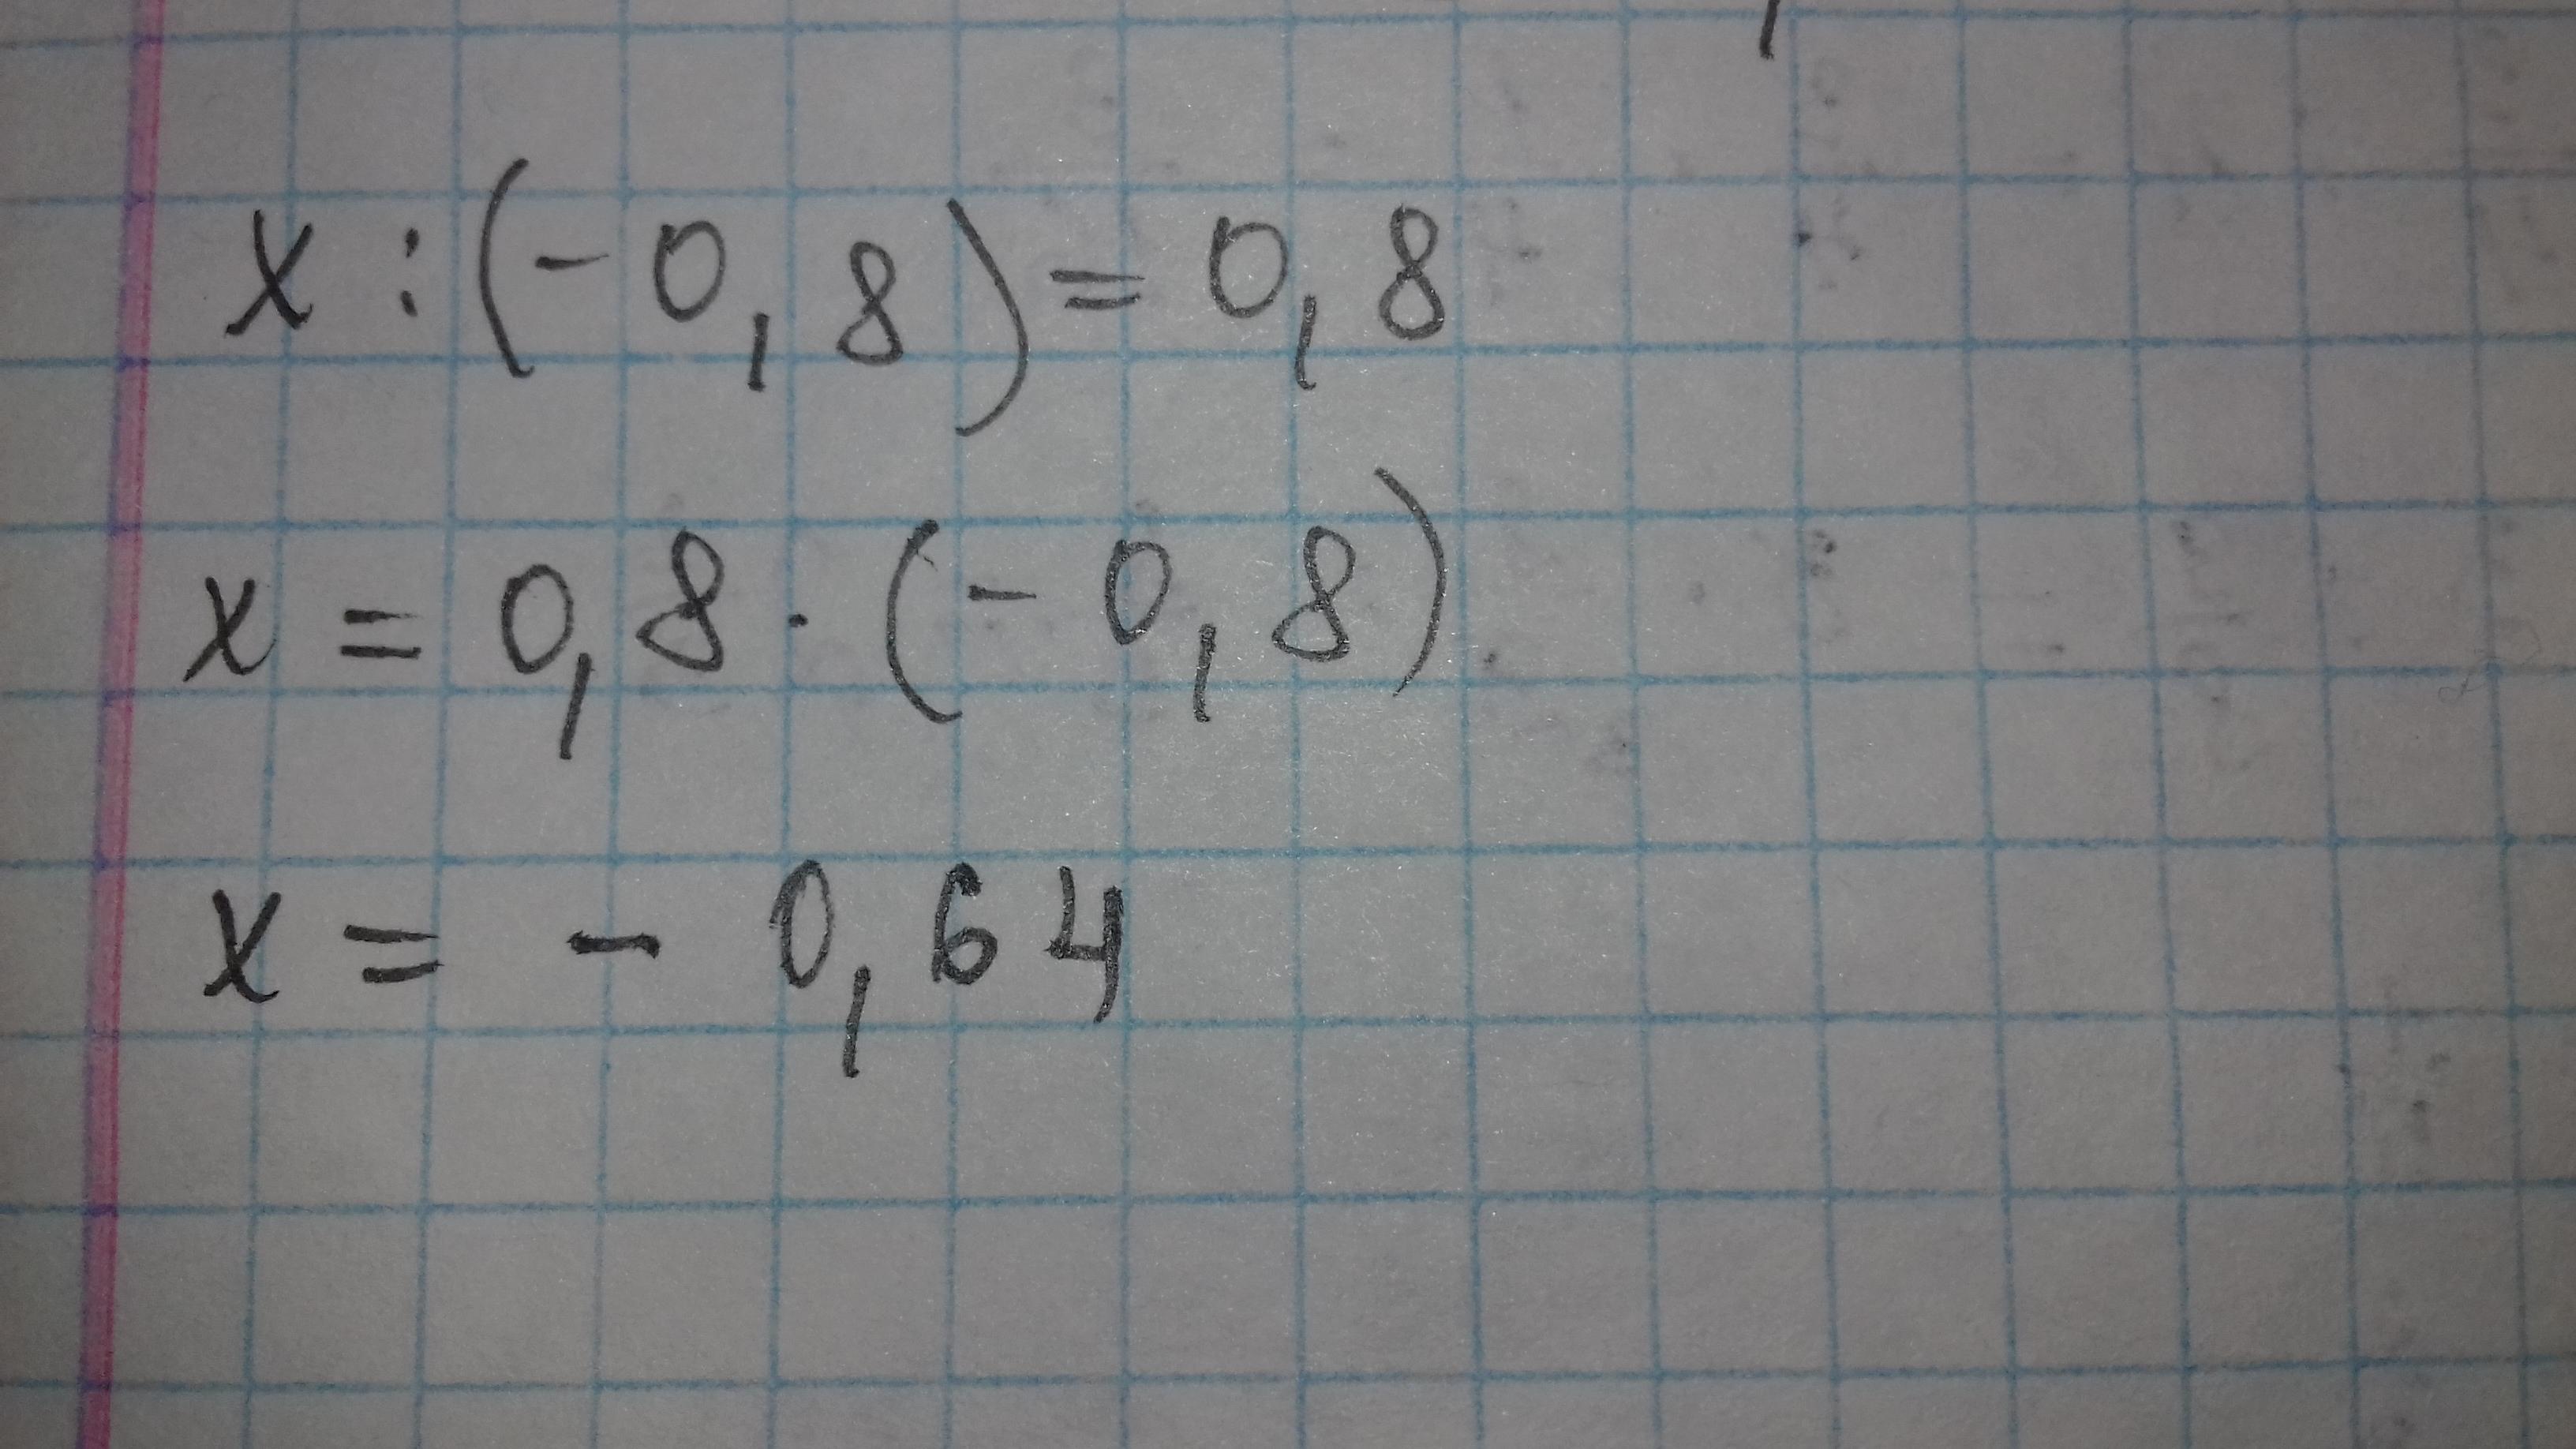 x : (- 0, 8) = 0, 8
x = 0, 8 · (- 0, 8)
x = - 0, 64